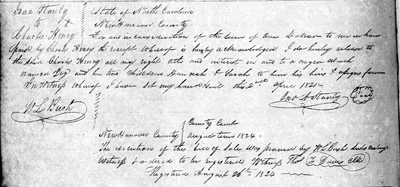 State of North Carolina
to
Charles Henry
New Hanover County
For and in consideration of the sum of one Dollar to me in hand
paid by Charles Henry the receipt whereof is hereby acknowledged I do hereby release to
the said Charles Henry all my right title and interest in and to a negro wench
named and her two Children & Sarah to him his heirs & assigns forever
In Witness whereof I have set my hand & seal this 2nd April 1821
W L Rush
Jno
County Court
New Hanover County August term 1824
The execution of this bill of sale was proved by W L Rush
Witness & ordered to be registered Witness Tho F Davis Clk
Registered August 26th 1824